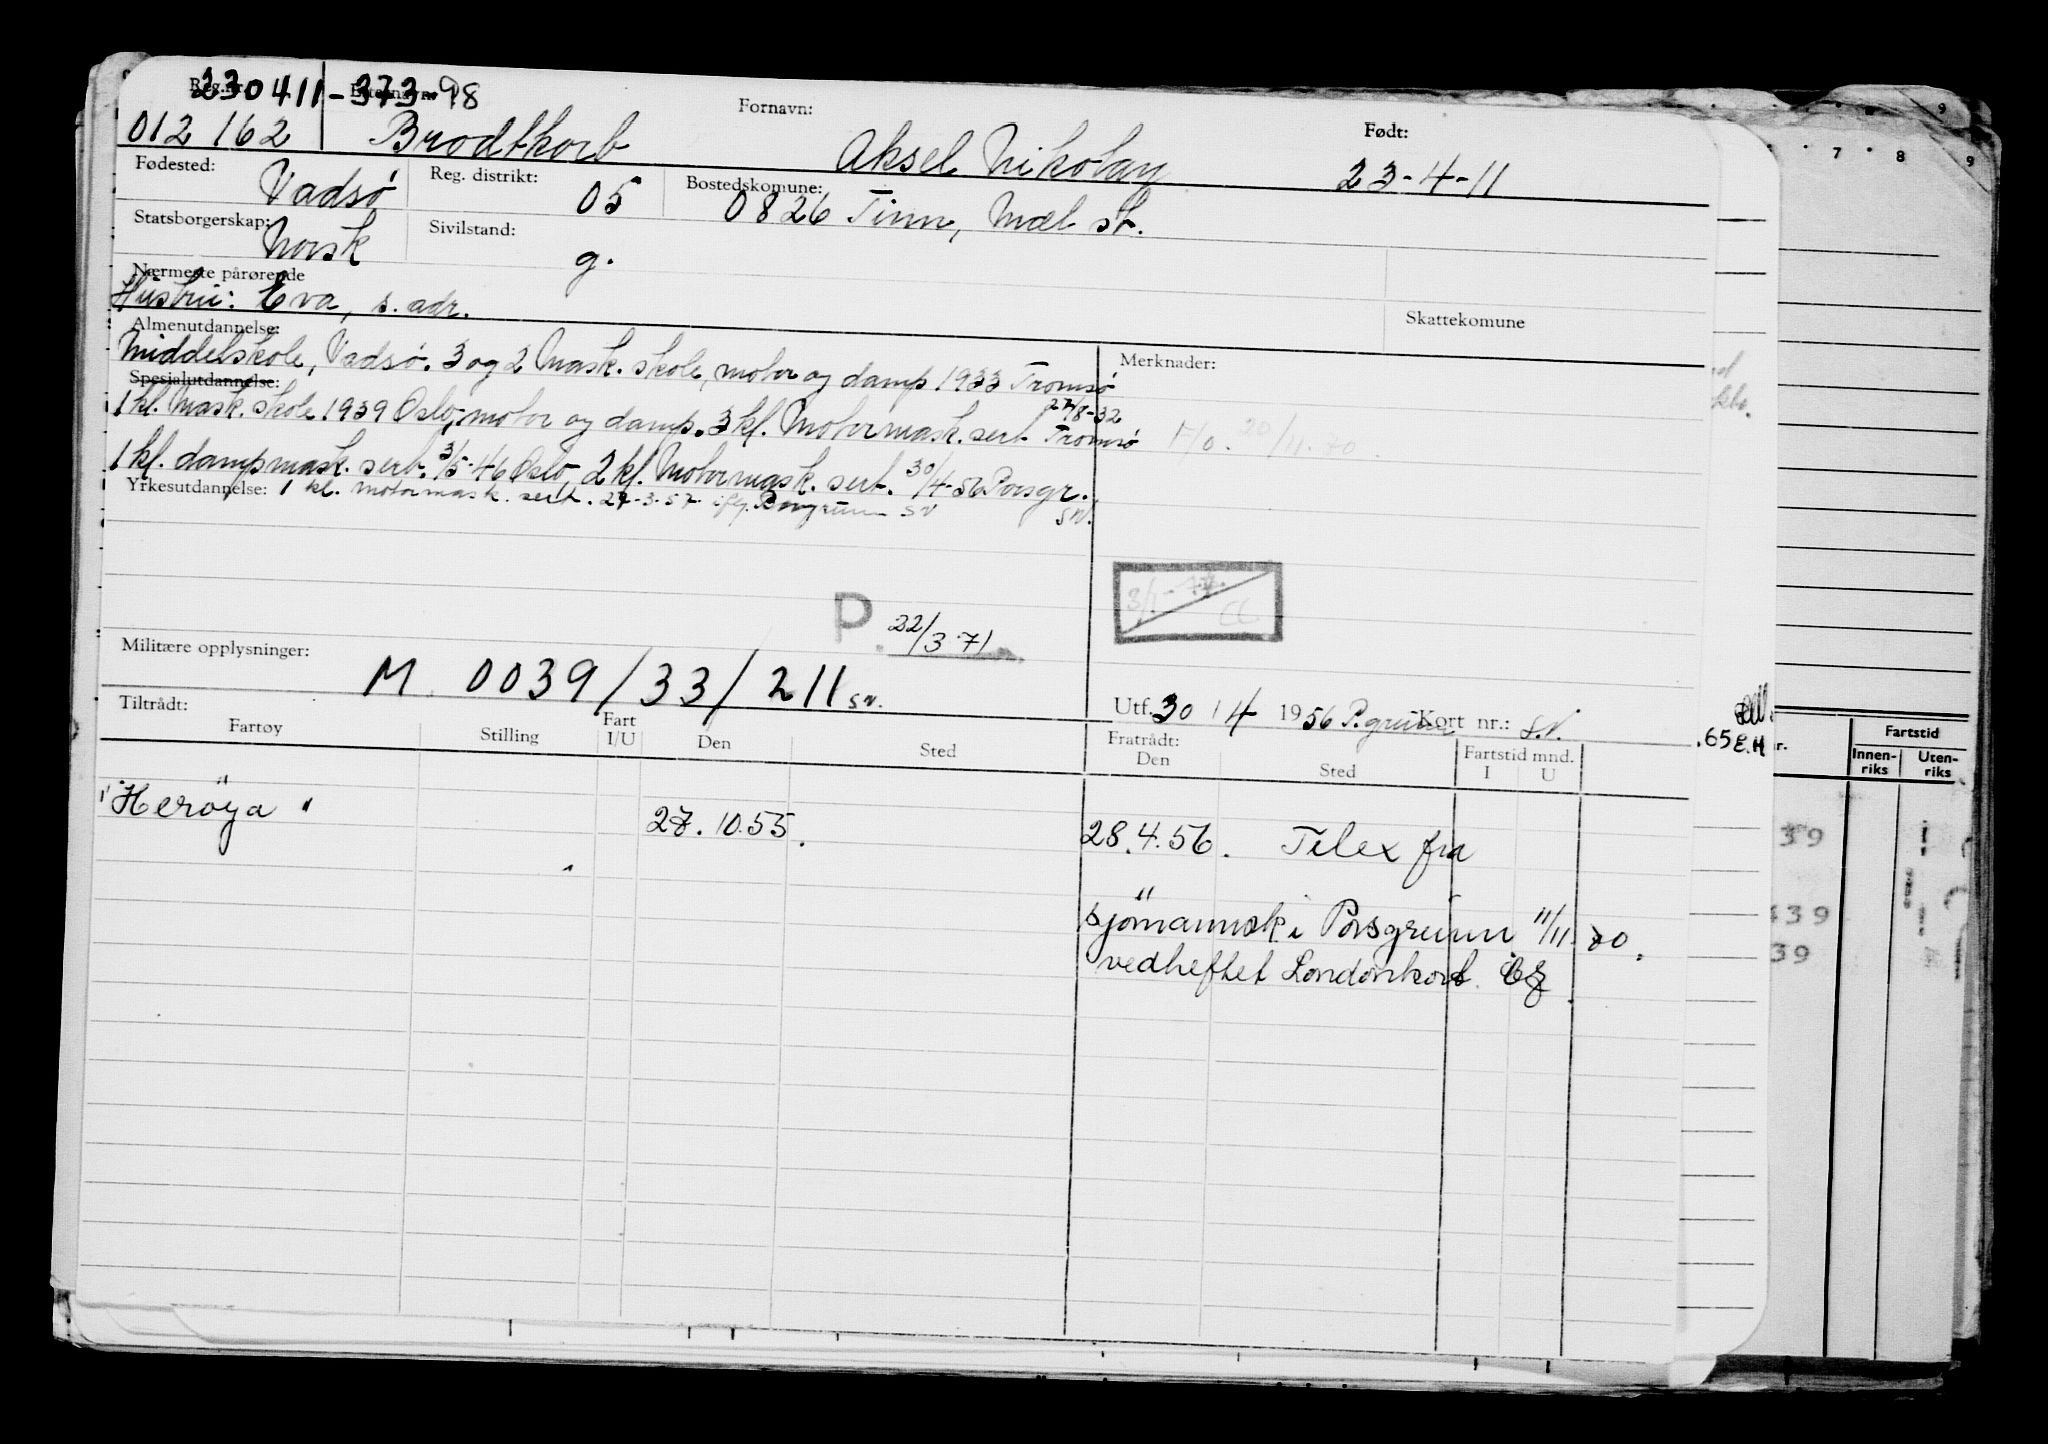 Reg.nr. 230411-373 98
Etternavn: Fornavn: Født:
012 162 Brodtkorb Aksel Nikolay 23-4-11
Fødested: Vadsø Reg. distrikt: 05 Bostedskomune: 0826 Tinn, Mæl st.
Statsborgerskap: Norsk Sivilstand: g.
Nærmeste pårørende
Hustru: Eva, s. adr.
Skattekomune
Almenutdannelse: Merknader:
Middelskole, Vadsø. 3 og 2 Mask. skole, motor og damp 1933 Tromsø
Spesialutdannelse:
1 kl. Mask. skole 1939 Oslo, motor og damp. 3 kl. Motormask. sert. 27/8-32 Tromsø
F/o. 20/11.70.
1 kl. dampmask. sert. 3/5-46 Oslo, 2 kl. Motormask. sert. 30/4-56 Porsgr.
Yrkesutdannelse: 1 kl. motormask. sert. 27-3-57 iflg. Porsgrunn SN
SN.
P. 22/3 71
3/1-
Militære opplysninger: M. 0039/33/211 SN.
Utf. 30/4 1956 P.grunn Kort nr.: S.N.
Tiltrådt: Fratrådt:
Fartøy Stilling Fart I/U Den Sted Den Sted Fartstid mnd. I U
"Herøya" 27.10.55. 28.4.56. Telex fra
sjömannsk i Porsgrunn 11/11 70.
vedheftet Londonkort.
7 8 9
9
.65 E.H
Fartstid
Innen-riks Uten-riks
39
439
39